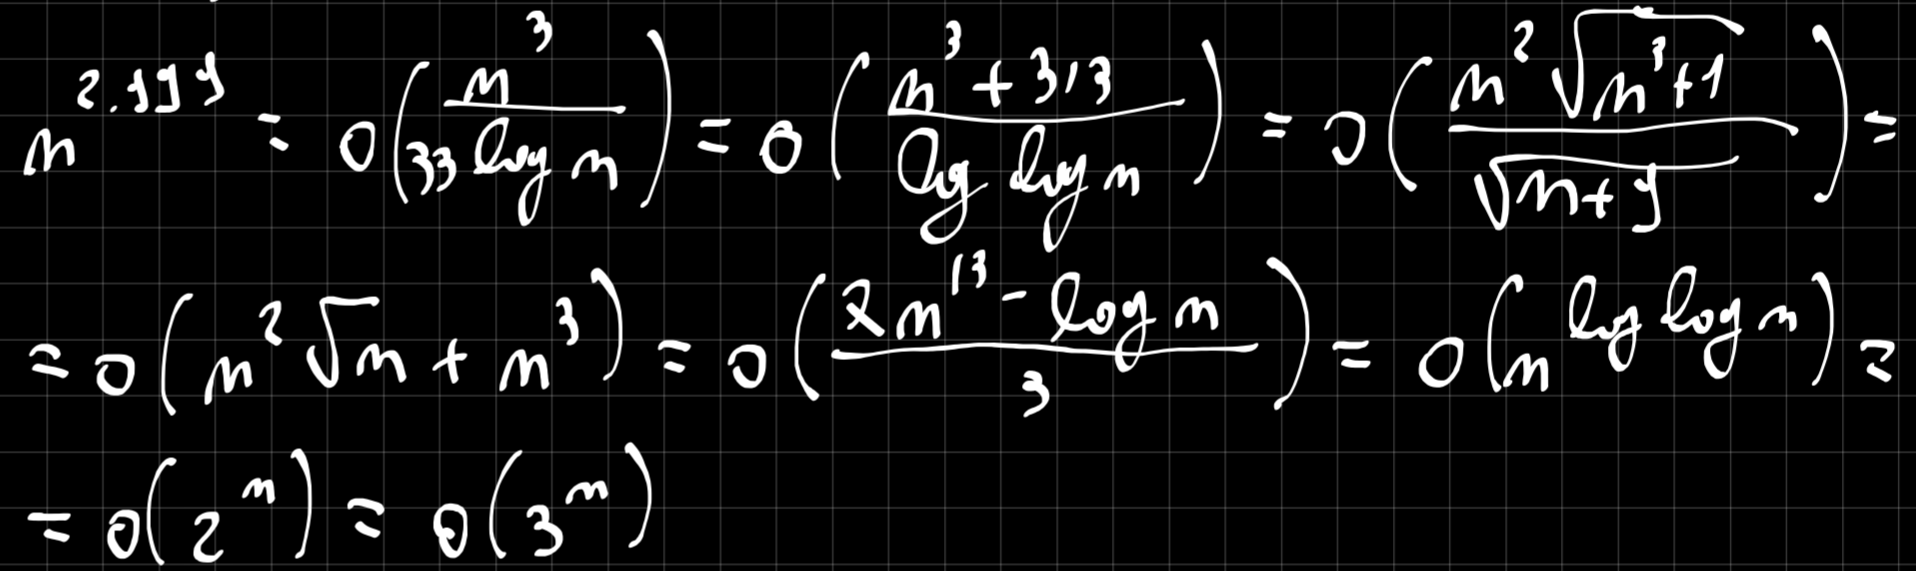 n^2.199 = o(n^3 / 33 log n) = o((n^3 + 313) / log log n) = o(n^2 √(n^3+1) / √(n+9)) =
= o(n^2 √n + n^3) = o((2n^13 - log n) / 3) = o(n^log log n) =
= o(2^n) = o(3^n)